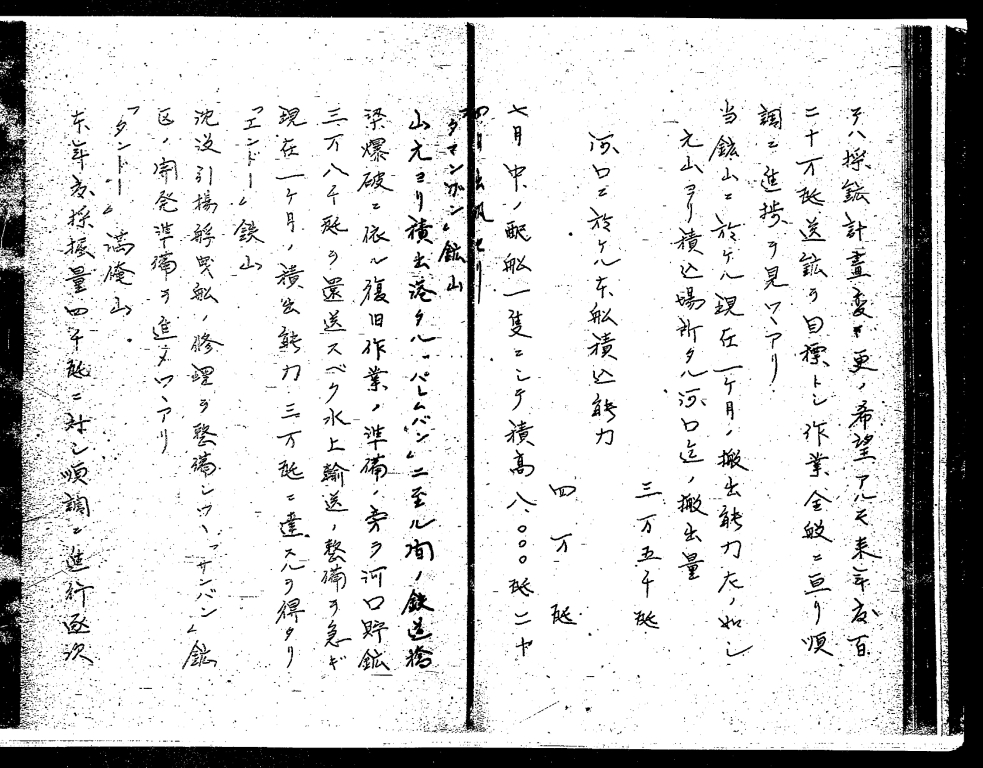 テハ採鉱計畫変更ノ希望アルモ来年度百
二十万瓲送鉱ヲ目標トシ作業全般ニ亘リ順
調ニ進捗ヲ見ツヽアリ
当鉱山ニ於ケル現在一ケ月ノ搬出能力左ノ如シ
元山ヨリ積込場所タル河口迄ノ搬出量
三万五千瓲
河口ニ於ケル本船積込能力
四万瓲
七月中ノ配船一隻ニシテ積高八、〇〇〇瓲二十
四日出帆セリ
「タマンガン」鉱山
山元ヨリ積出港タル「パレムバン」ニ至ル間ノ鉄道橋
梁爆破ニ依ル復旧作業ノ準備ノ旁ラ河口貯鉱
三万八千瓲ヲ還送スベク水上輸送ノ整備ヲ急ギ
現在一ケ月ノ積出能力三万瓲ニ達スルヲ得タリ
「エンドー」鉄山
沈没引揚艀曳船ノ修理ヲ整備シツヽ「サンバン」鉱
区ノ開発準備ヲ進メツヽアリ
「タンドー」満俺山
本年度採掘量四千瓲ニ対シ順調ニ進行逐次